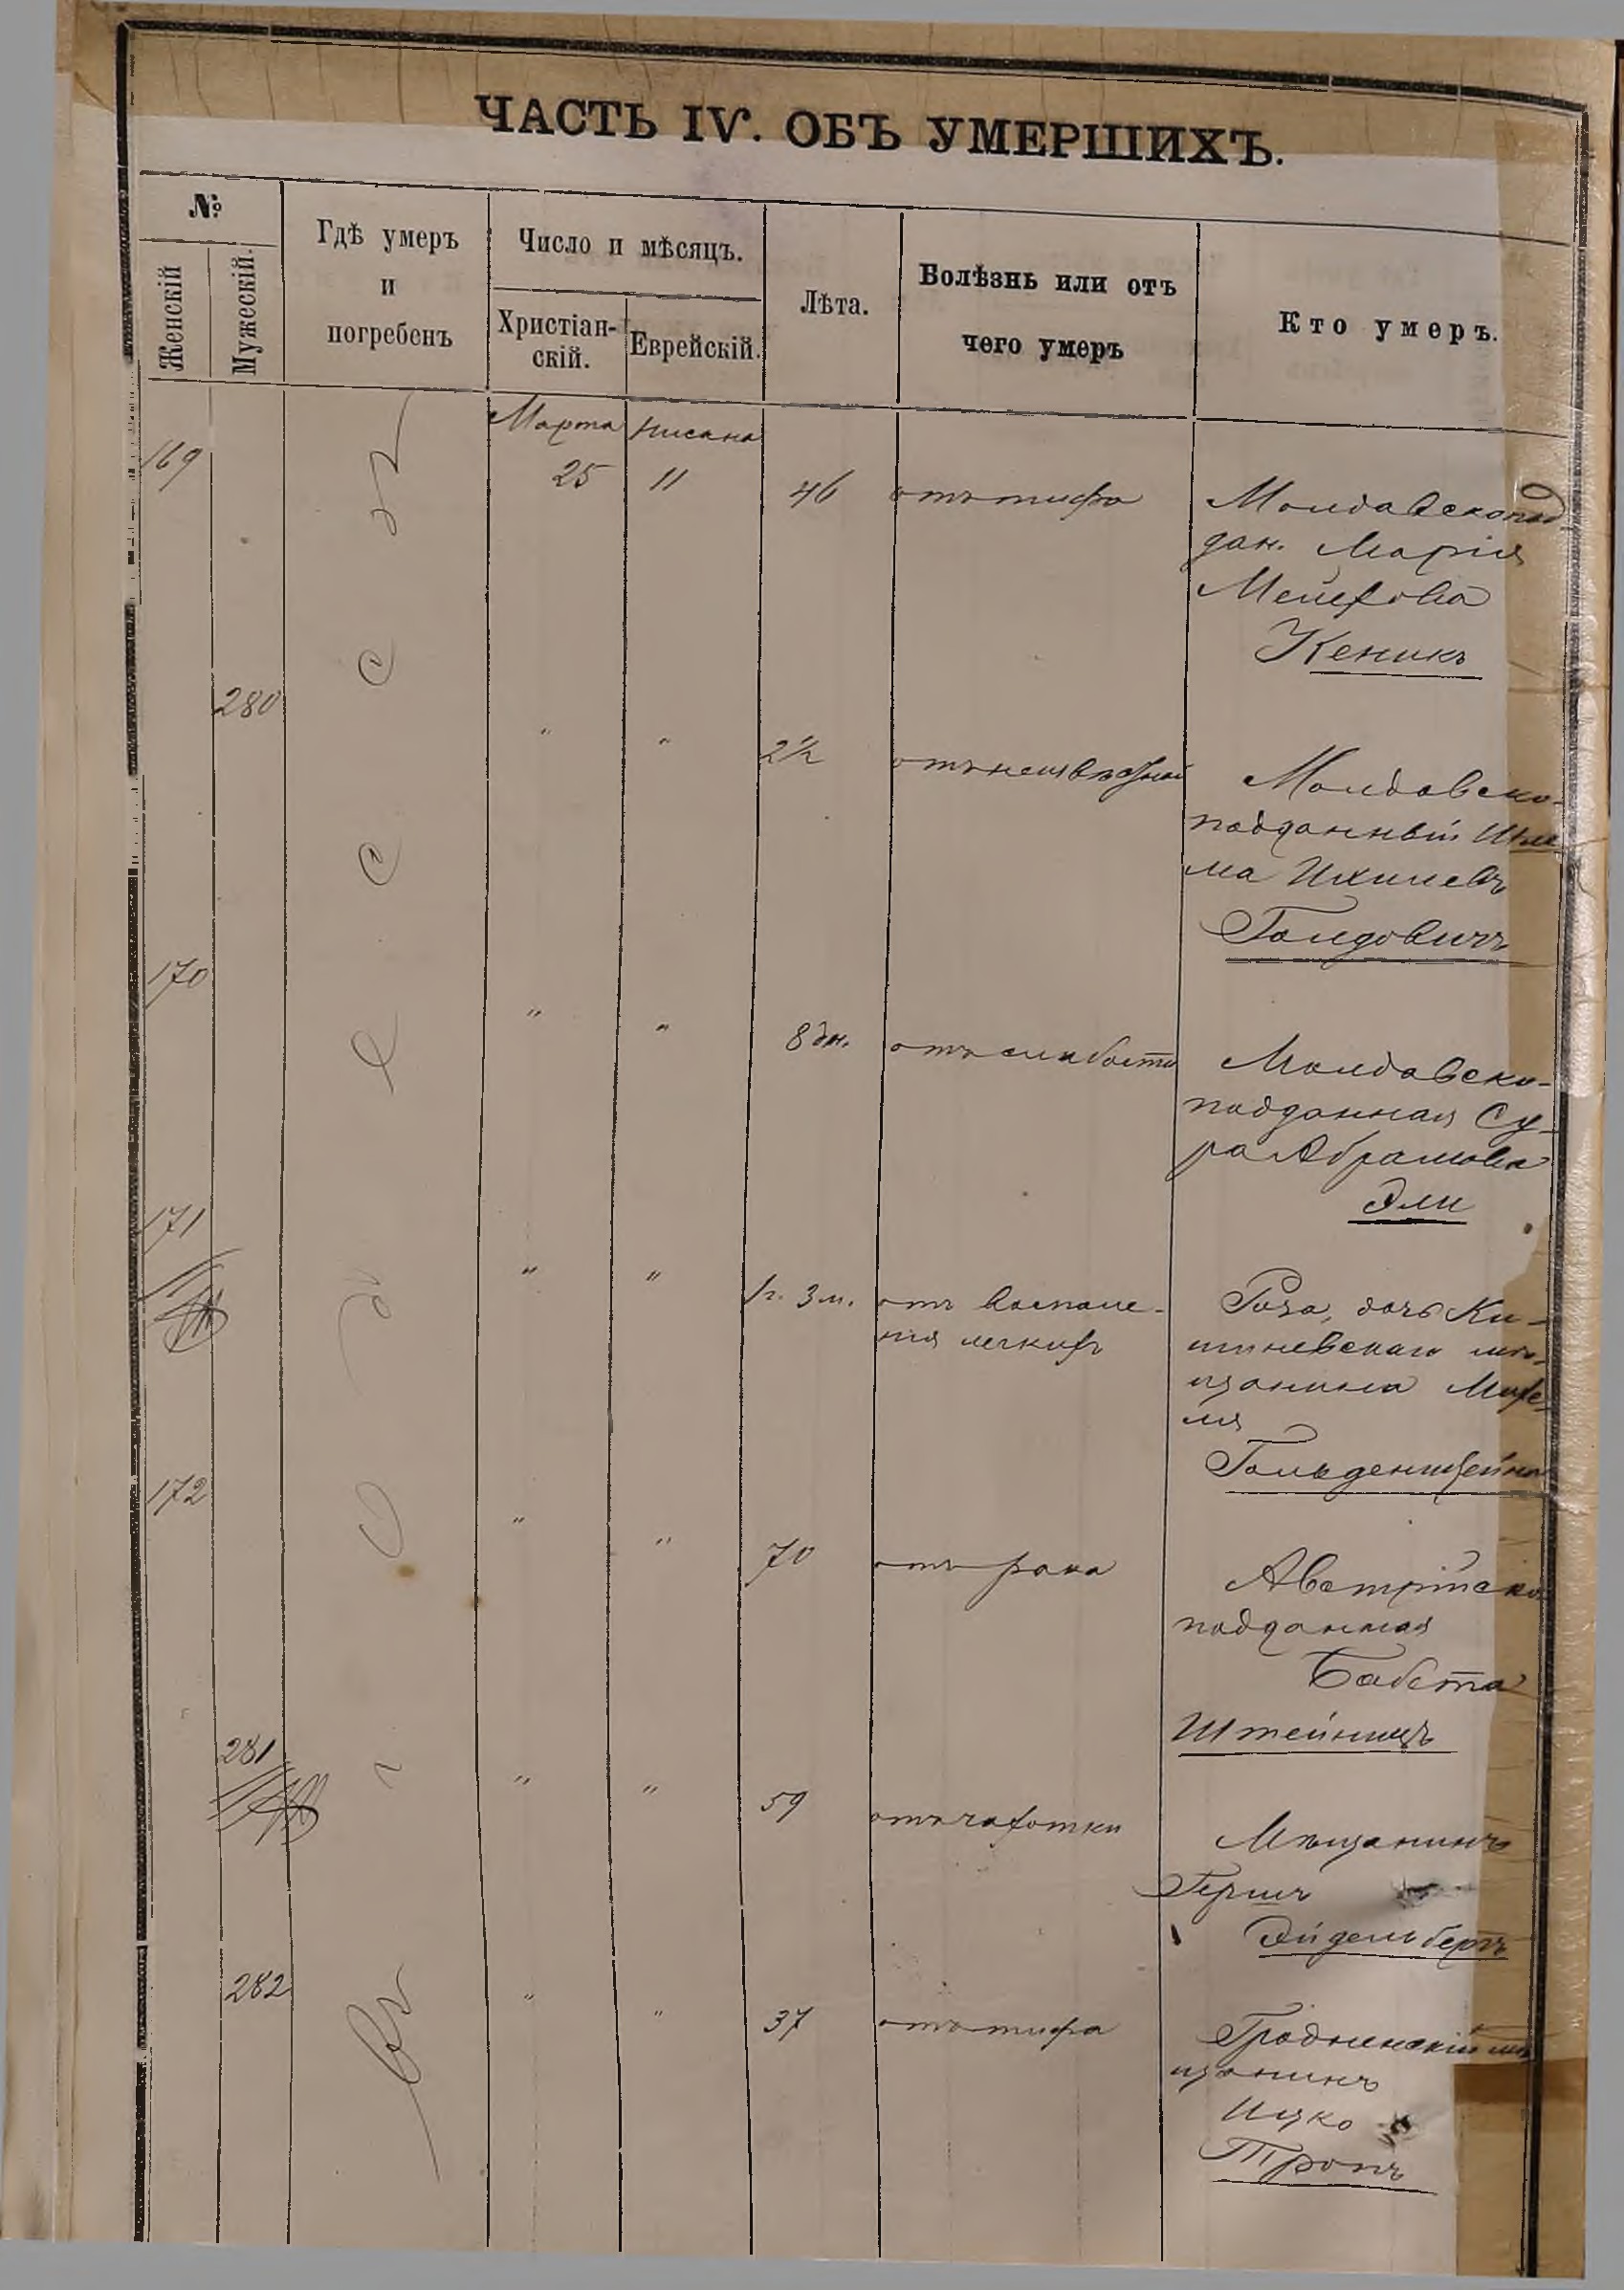 ЧАСТЬ IV. ОБЪ УМЕРШИХЪ.
№
Женскій
Мужескій.
Гдѣ умеръ
и
погребенъ
Число и мѣсяцъ.
Христіан-
скій.
Еврейскій.
Лѣта.
Болѣзнь или отъ
чего умеръ
Кто умеръ.
въ Одессѣ
Марта Нисана
169 25 11 46 отъ тифа Молдавскопод
дан. Марія
Меерова
Кеникъ
280 " " 2½ отъ неизвѣстной Молдавско-
подданный Шле
ма Ихилевъ
Голдовичъ
170 " " 8 дн. отъ слабости Молдавско-
подданная Су-
ра Абрамова
Эли
171 " " 1 г. 3 м. отъ воспале- Роза, дочь Ки-
нія легкихъ шиневскаго мѣ-
щанина Михе-
ля
Гольденштейна
172 " " 70 отъ рака Австрійско
подданная
Бабета
281 " " 59 отъ чахотки Мѣщанинъ
Гершъ
Эйдельбергъ
282 " " 37 отъ тифа Гродненскій мѣ
щанинъ
Ицко
Тропъ